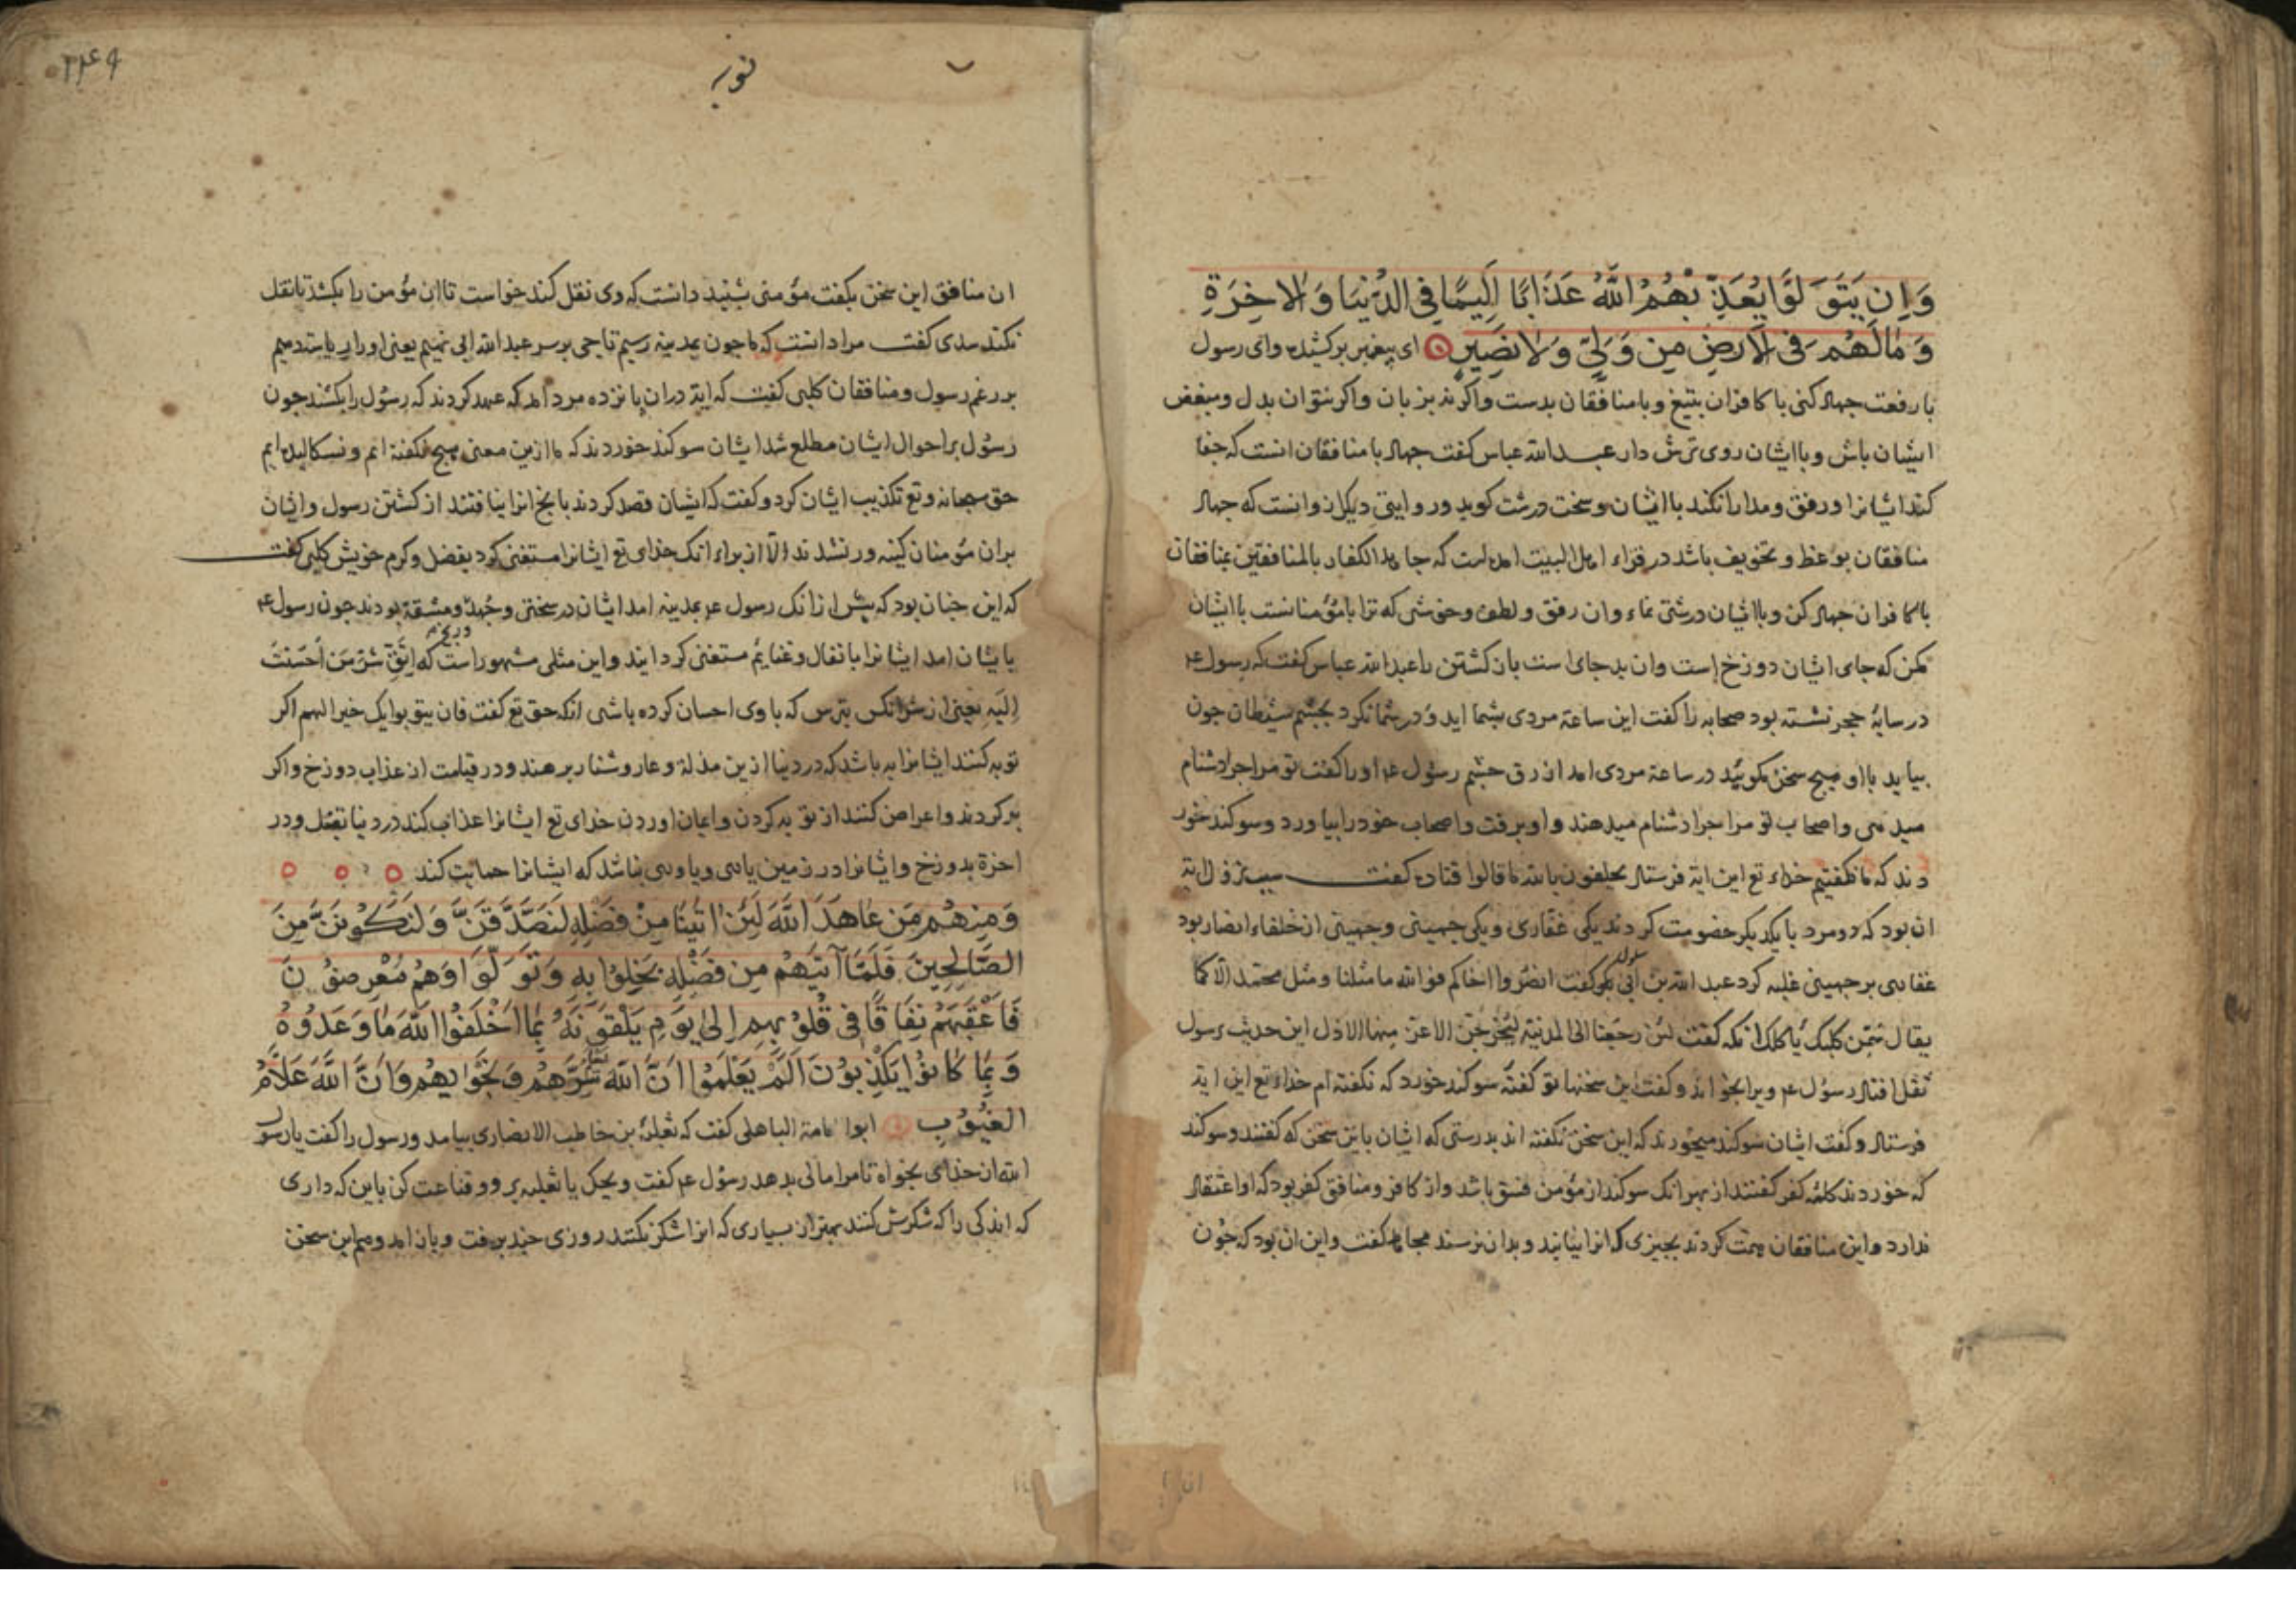 وَاِن يَتَوَلَّوا يُعَذِّبْهُمُ اللَّهُ عَذَابًا اَلِيمًا فِي الدُّنيَا وَالاخِرَةِ
وَمَالَهُم فِى الاَرضِ مِن وَلِىّ وَلا نَصِيرٍ اى پيغمبر بركشيده واى رسول
با رفعت جهاد كنى با كافران بتيغ و با منافقان بدست واكر نه بزبان واكر نتوان بدل و مبغض
ايشان باش و با ايشان روى ترش دار عبد الله عباس كفت جهاد با منافقان انست كه جفا
كند ايشانرا و رفق و مدارا نكند با ايشان و سخت درشت كويد و روايتى ديكر ازو انست كه جهاد
منافقان بوعظ و تخويف باشد در قراءة اهل البيت امده است كه جاهد الكفار بالمنافقين بمنافقان
با كافران جهاد كن و با ايشان درشتى نماء وان رفق و لطف و خوشى كه ترا با مؤمنانست با ايشان
مكن كه جاى ايشان دوزخ است وان بد جاى است باز كشتن را عبد الله عباس كفت كه رسول ع
در سايهٔ حجر نشسته بود صحابه را كفت اين ساعة مردى بشما ايد و در شما نكرد بچشم شيطان چون
بيايد با او هيچ سخن مكوئيد در ساعة مردى امد ازرق چشم رسول ع او را كفت تو مرا چرا دشنام
ميدهى واصحاب تو مرا چرا دشنام ميدهند و او برفت واصحاب خود را بياورد و سوكند خور
دند كه ما نكفتيم خداء تع اين اية فرستاد يحلفون بالله ما قالوا قتاده كفت سبب نزول اية
ان بود كه دو مرد با يكديكر خصومت كردند يكى غفارى و يكى جهينى و جهينى از خلفاء انصار بود
غفارى بر جهينى غلبه كرد عبد الله بن ابى سلول كفت انصروا اخاكم فو الله ما مثلنا و مثل محمد الّا كما
يقال سَمِّن كلبك يأكلك انكه كفت لئن رجعنا الى المدينة ليُخرِجنّ الاعزّ منها الاذل اين حديث برسول
نقل افتاد رسول ع ويرا بخواند و كفت اين سخنها تو كفتهٔ سوكند خورد كه نكفته ام خداء تع اين اية
فرستاد و كفت ايشان سوكند ميخورند كه اين سخن نكفته اند بدرستى كه ايشان باين سخن كه كفتند و سوكند
كه خوردند كلمهٔ كفر كفتند از بهر انك سوكند از مؤمن فسق باشد واز كافر و منافق كفر بود كه او اعتقاد
ندارد و اين منافقان همت كردند بچيزى كه انرا نيابند و بدان نرسند مجاهد كفت و اين ان بود كه چون
توبه
٣٤٩
ان منافق اين سخن بكفت مؤمنى بشنيد دانست كه وى نقل كند خواست تا ان مؤمن را بكشد تا نقل
نكند سدى كفت مراد انست كه ما چون بمدينه رسيم تاجى بر سر عبد الله ابى نهيم يعنى او را رياست دهيم
بر رغم رسول و منافقان كلبى كفت كه اية در ان پانزده مرد امد كه عهد كردند كه رسول را بكشند چون
رسول بر احوال ايشان مطلع شد ايشان سوكند خوردند كه ما ازين معنى هيچ نكفته ايم و نسكاليده ايم
حق سبحانه وتع تكذيب ايشان كرد و كفت كه ايشان قصد كردند بانج انرا نيافتند از كشتن رسول وايشان
بران مؤمنان كينه ور نشدند الّا از براء انك خداى تع ايشانرا مستغنى كرد بفضل و كرم خويش كلبى كفت
كه اين چنان بود كه پيش از انك رسول ع بمدينه امد ايشان در سختى و جهد و مشقة بودند چون رسول ع
بايشان امد ايشانرا بانفال و غنايم مستغنى كردانيد واين مثلى مشهور است كه اِتَّقِ شرّ مَن اَحسَنتَ
اِلَيه يعنى از شر انكس بترس كه با وى احسان كرده باشى انكه حق تع كفت فان يتوبوا يك خيرا لهم اكر
توبه كنند ايشانرا به باشد كه در دنيا ازين مذلة و عار و شنار برهند و در قيامت از عذاب دوزخ واكر
بر كردند واعراض كنند از توبه كردن وايمان اوردن خداى تع ايشانرا عذاب كند در دنيا بقتل و در
اخرة بدوزخ وايشانرا در زمين يارى وياورى نباشد كه ايشانرا حمايت كند
وَمِنهُم مَن عَاهَدَ اللَّهَ لَئِن اتَينَا مِن فَضلِهِ لَنَصَّدَّقَنَّ وَلَنَكُونَنَّ مِنَ
الصَّالِحِينَ فَلَمَّا آتَيهُم مِن فَضلِهِ بَخِلُوا بِهِ وَتَوَلَّوا وَهُم مُعرِضُونَ
فَاَعقَبَهُم نِفَاقًا فِى قُلُوبِهِم اِلى يَومِ يَلقَونَهُ بِمَا اَخلَفُوا اللَّهَ مَا وَعَدُوهُ
وَبِمَا كَانُوا يَكذِبُونَ اَلَم يَعلَمُوا اَنَّ اللَّهَ يَعلَمُ سِرَّهُم وَنَجوَاهُم وَاَنَّ اللَّهَ عَلَّامُ
الغُيُوبِ ابوا مامة الباهلى كفت كه ثعلبة بن حاطب الانصارى بيامد و رسول را كفت يا رسول
الله از خداى بخواه تا مرا مالى بدهد رسول ع كفت ويحك يا ثعلبه برو و قناعت كن باين كه دارى
كه اندكى را كه شكرش كنند بهتر از بسيارى كه انرا شكر نكنند روزى چند برفت و باز امد و هم اين سخن